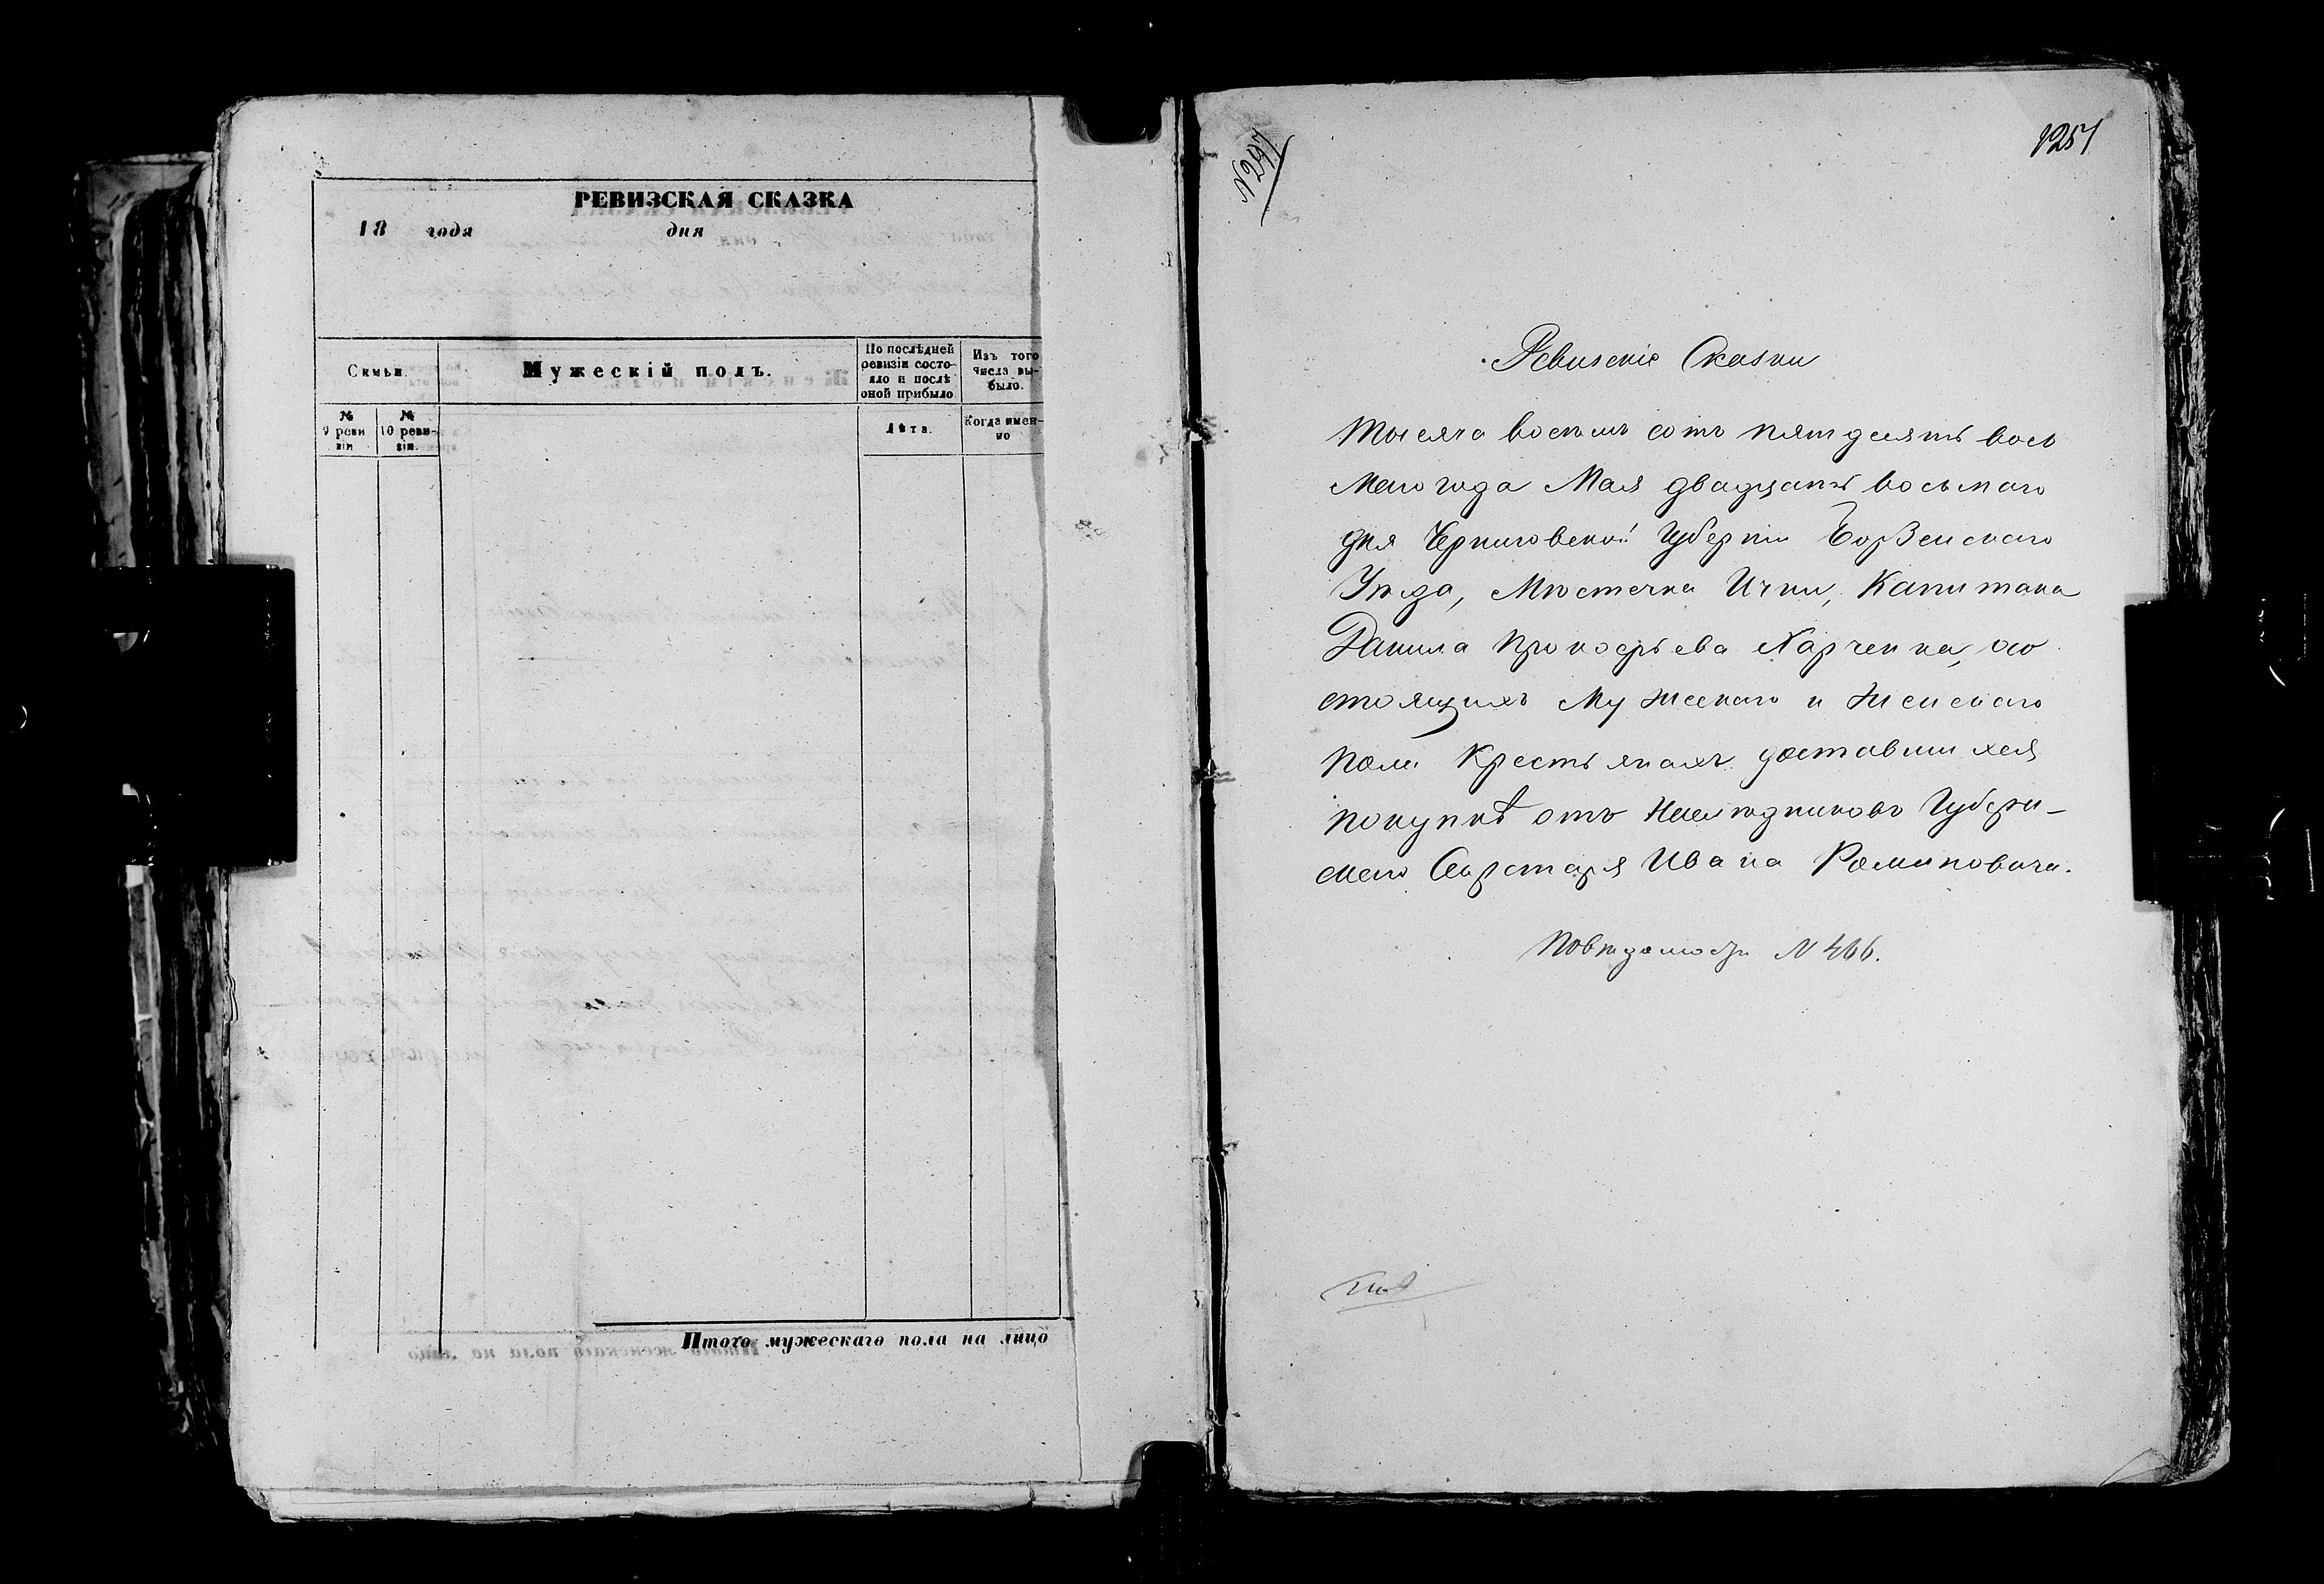 РЕВИЗСКАЯ СКАЗКА
18 года дня
Семьи.
Мужескій полъ.
По послѣдней ревизіи состояло и послѣ оной прибыло
Изъ того числа выбыло.
№ 9 ревизіи
№ 10 ревизіи.
Лѣта.
Когда именно
Итого мужескаго пола на лицо
№297
1251
Ревизскіе Сказки
Тысяча восемь сотъ пятдесятъ вось
маго года Мая двадцать восьмаго
дня Черниговской Губерніи Борзенскаго
Уѣзда, Мѣстечка Ични, Капитана
Данила Прокофьева Харченка, со
стоящихъ Мужескаго и Женскаго
пола Крестьянахъ доставшихся
покупкѣ отъ Наслѣдниковъ Губерн-
скаго Секретаря Ивана Романовича.
По вѣдомости № 466.